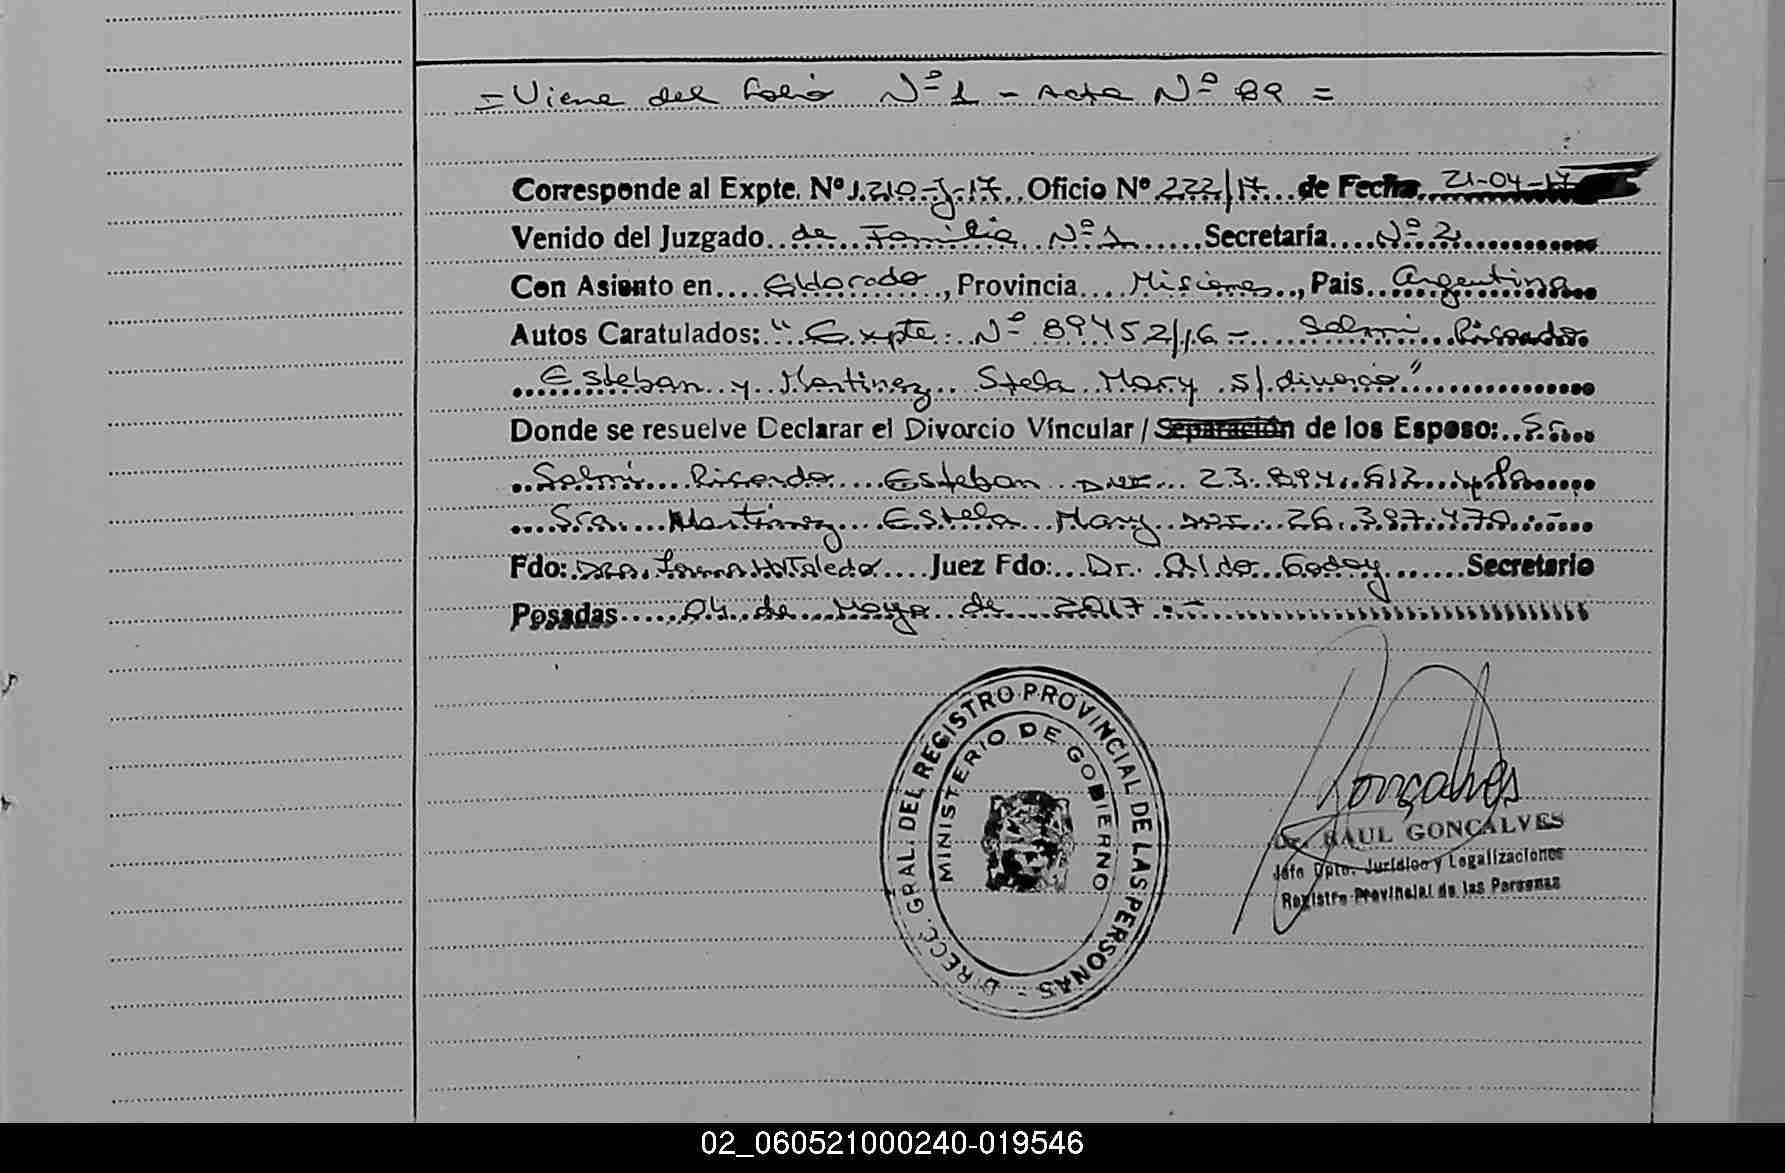 = Viene del Folio Nº 1 - Acta Nº 89 =
Corresponde al Expte. Nº 1.210-J-17 Oficio Nº 222/17 de Fecha 21-04-17
Venido del Juzgado de Familia Nº 1 Secretaría Nº 2
Con Asiento en Eldorado, Provincia Misiones, Pais Argentina
Autos Caratulados: "Expte. Nº 89452/16 - Ricardo
Esteban y Martinez Stela Mary s/divorcio"
Donde se resuelve Declarar el Divorcio Víncular / Separación de los Esposo: Sr.
Ricardo Esteban DNI 23.894.612 y la
Sra. Martinez Estela Mary DNI 26.387.470.-
Fdo: Dra. H. Toledo Juez Fdo: Dr. Aldo Godoy Secretario
Posadas 04 de Mayo de 2017.-
DIRECC. GRAL. DEL REGISTRO PROVINCIAL DE LAS PERSONAS -
MINISTERIO DE GOBIERNO
Gonçalves
Dr. RAUL GONÇALVES
Jefe Dpto. Jurídico y Legalizaciones
Registro Provincial de las Personas
02_060521000240-019546